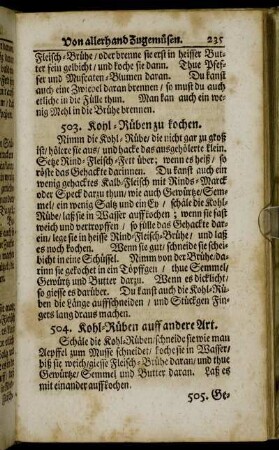 Von allerhand Zugemüsen. 235
Fleisch-Brühe/ oder brenne sie erst in heisser But-
ter fein gelbicht/ und koche sie dann. Thue Pfef-
fer und Muscaten-Blumen daran. Du kanst
auch eine Zwiebel daran brennen/ so must du auch
etliche in die Fülle thun. Man kan auch ein we-
nig Mehl in die Brühe brennen.
503. Kohl-Rüben zu kochen.
Nimm die Kohl-Rübe/ die nicht gar zu groß
ist/ hölere sie aus/ und hacke das ausgehölerte klein.
Setze Rind-Fleisch-Fett über; wenn es heiß/ so
röste das Gehackte darinnen. Du kanst auch ein
wenig gehacktes Kalb-Fleisch mit Rinds-Marck
oder Speck darzu thun/ wie auch Gewürtz/ Sem-
mel/ ein wenig Saltz und ein Ey/ schäle die Kohl-
Rübe/ laß sie in Wasser auffkochen; wenn sie fast
weich und vertropffen/ so fülle das Gehackte dar-
ein/ lege sie in heisse Rind-Fleisch-Brühe/ und laß
es noch kochen. Wenn sie gar/ schneide sie schei-
bicht in eine Schüssel. Nimm von der Brühe/ da-
rinn sie gekochet in ein Töpffgen/ thue Semmel/
Gewürtz und Butter darzu. Wenn es dicklicht/
so giesse es darüber. Du kanst auch die Kohl-Rü-
ben die Länge auffschneiden/ und Stückgen Fin-
gers lang draus machen.
504. Kohl-Rüben auff andere Art.
Schäle die Kohl-Rüben/ schneide sie wie man
Aepffel zum Musse schneidet/ koche sie in Wasser/
biß sie weich/ giesse Fleisch-Brühe daran/ und thue
Gewürtze/ Semmel und Butter daran. Laß es
mit einander auffkochen.
505. Ge-